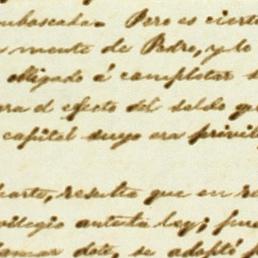 emboscada. Pero es cierto
mente de Pedro, y lo
obligado á completar
el efecto del saldo que
capital suyo era privile
cuarto, resulta que en
vilegio ley; pues
llamar dote, se adoptó